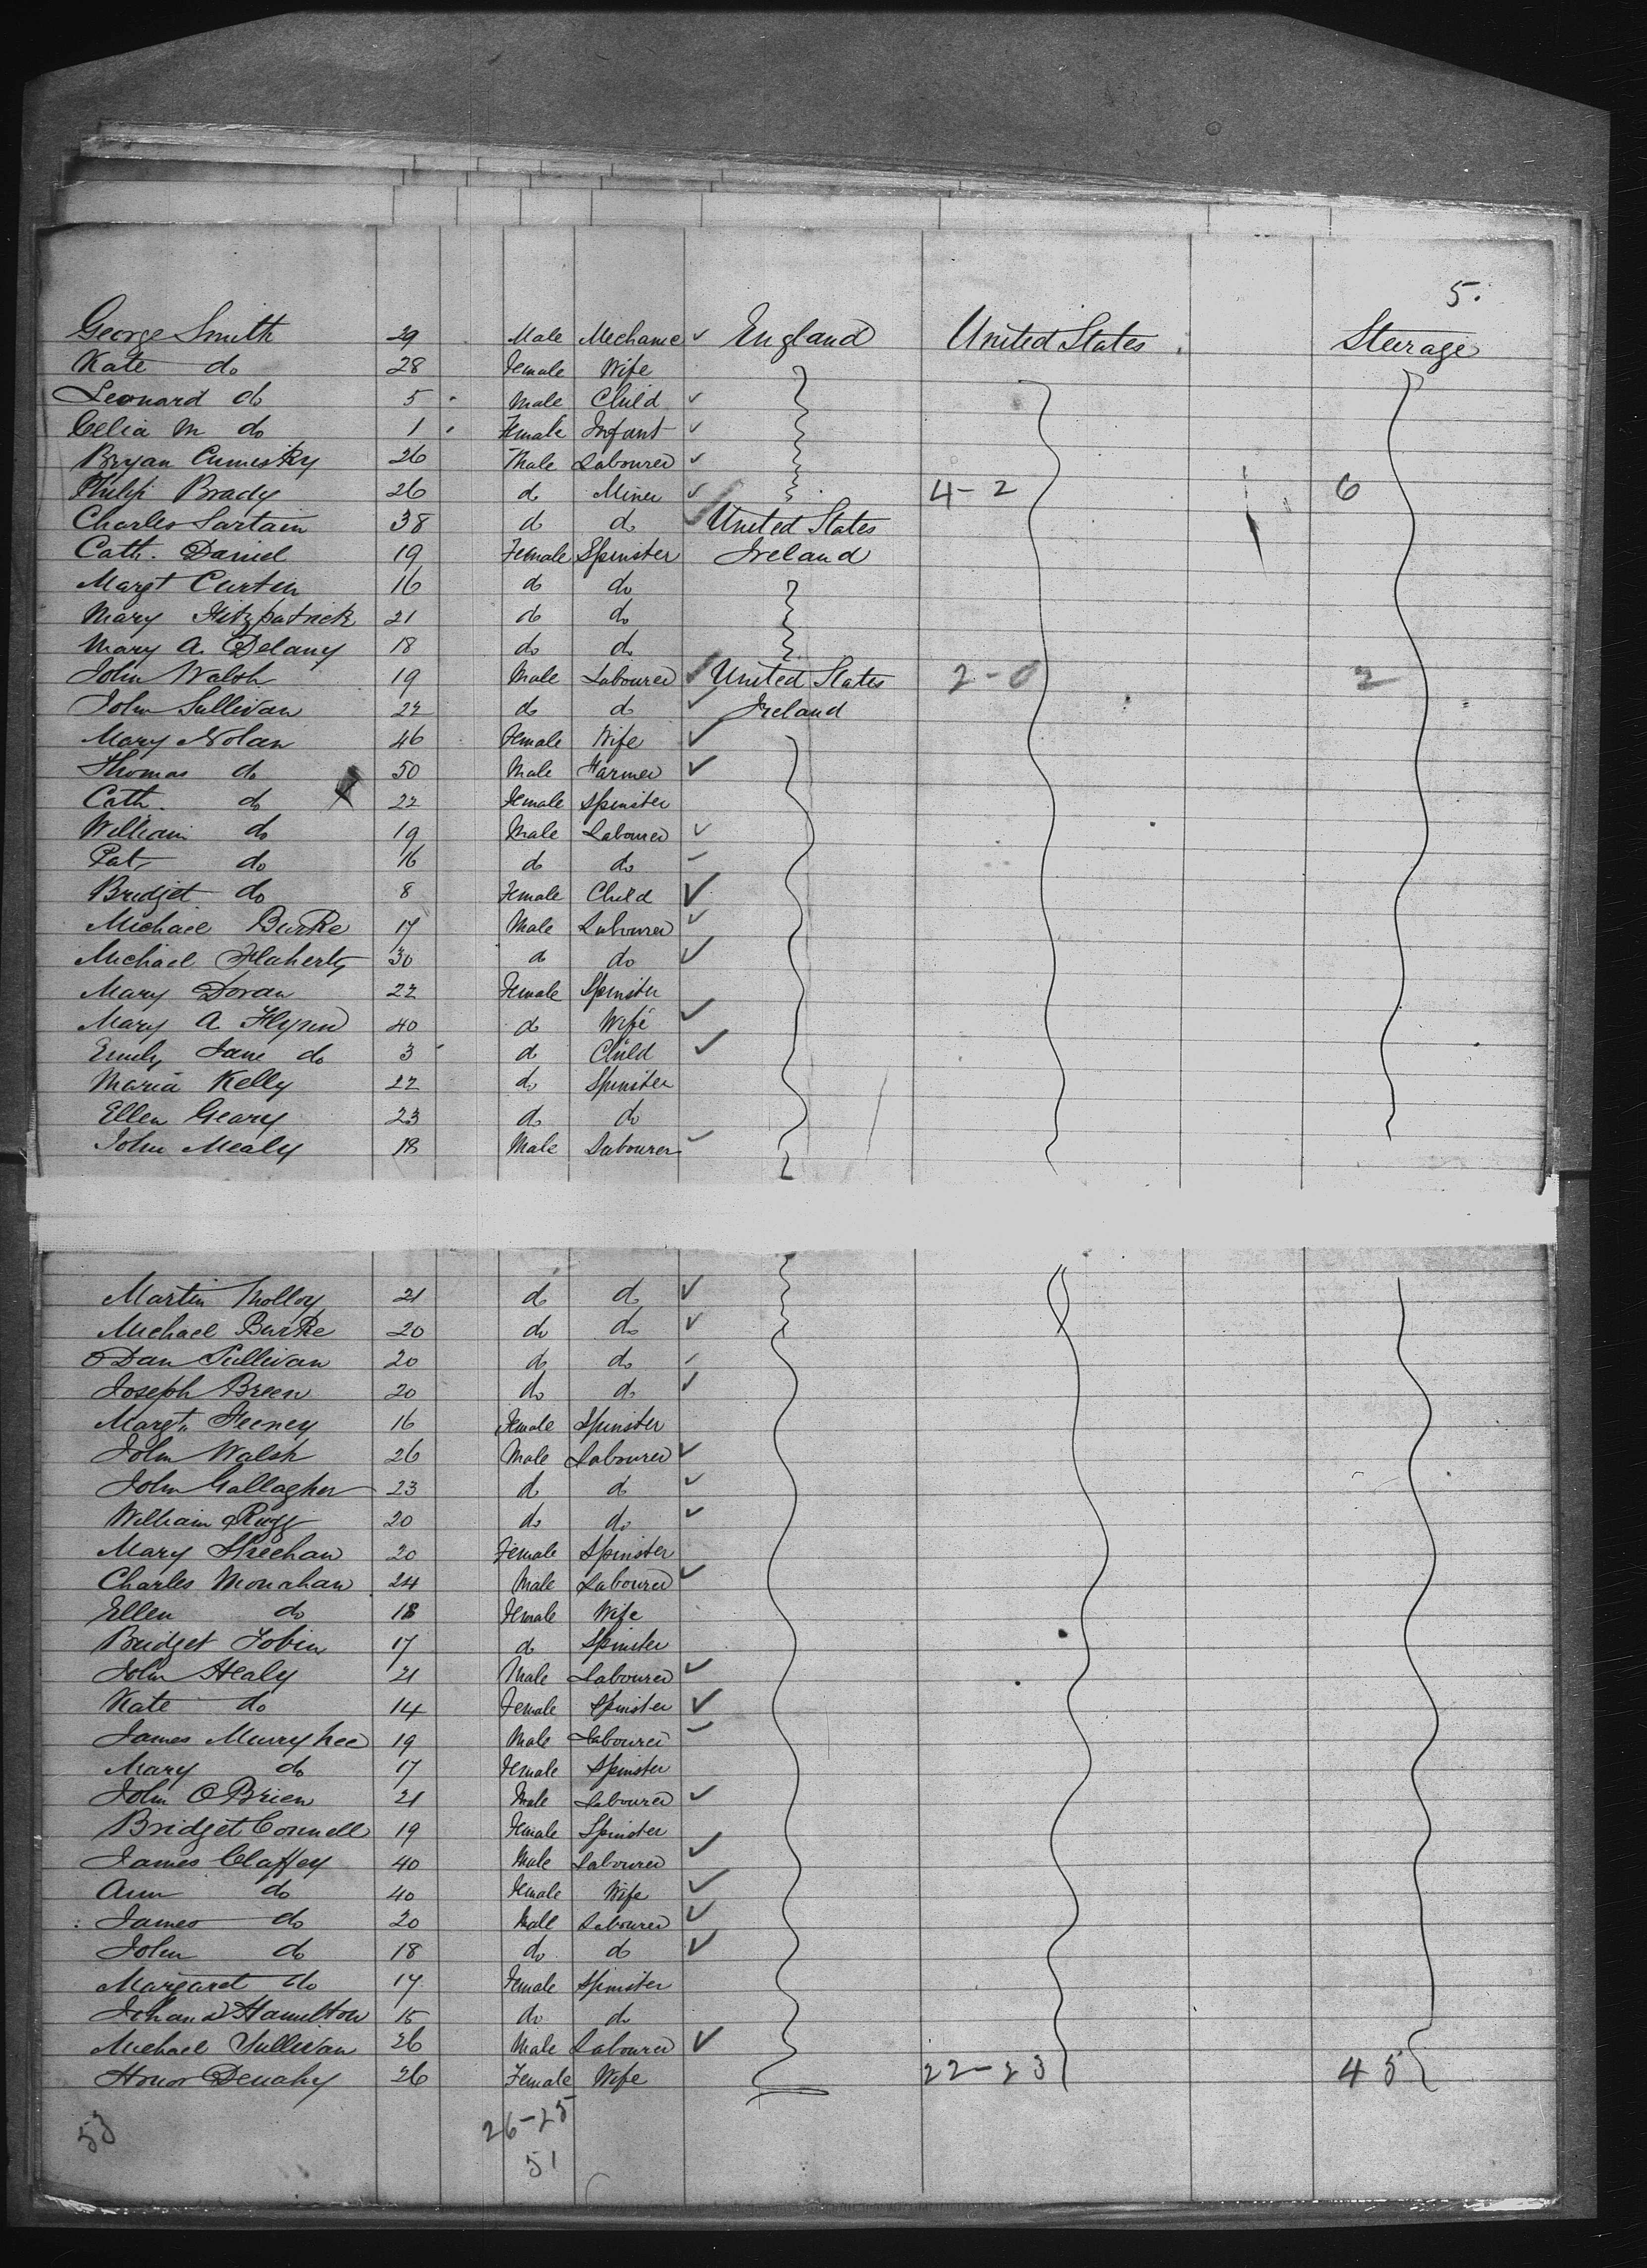 5.
George Smith 29 Male Mechanic ✓ England United States Steerage
Kate do 28 Female Wife
Leonard do 5 Male Child ✓
Celia M do 1 Female Infant ✓
Bryan Cumisky 26 Male Labourer ✓
Philip Brady 26 do Miner ✓ 4-2 6
Charles Sartain 38 do do ✓ United States
Cath. Daniel 19 Female Spinster Ireland
Margt Curtin 16 do do
Mary Fitzpatrick 21 do do
Mary A. Delany 18 do do
John Walsh 19 Male Labourer ✓ United States 2-0 2
John Sullivan 22 do do ✓ Ireland
Mary Nolan 46 Female Wife ✓
Thomas do 50 Male Farmer ✓
Cath. do 22 Female Spinster
William do 19 Male Labourer ✓
Pat do 16 do do ✓
Bridget do 8 Female Child ✓
Michael Burke 17 Male Labourer ✓
Michael Flaherty 30 do do ✓
Mary Doran 22 Female Spinster
Mary A Flynn 40 do Wife ✓
Emily Jane do 3 do Child ✓
Maria Kelly 22 do Spinster
Ellen Geary 23 do do
John Mealy 18 Male Labourer ✓
Martin Molloy 21 do do ✓
Michael Burke 20 do do ✓
Dan Sullivan 20 do do ✓
Joseph Breen 20 do do ✓
Margt Feeney 16 Female Spinster
John Walsh 26 Male Labourer ✓
John Gallagher 23 do do ✓
William 20 do do ✓
Mary Sheehan 20 Female Spinster
Charles Monahan 24 Male Labourer ✓
Ellen do 18 Female Wife
Bridget Tobin 17 do Spinster
John Healy 21 Male Labourer ✓
Kate do 14 Female Spinster ✓
James 19 Male Labourer ✓
Mary do 17 Female Spinster
John O'Brien 21 Male Labourer ✓
Bridget Connell 19 Female Spinster
James Claffey 40 Male Labourer ✓
Ann do 40 Female Wife ✓
James do 20 Male Labourer ✓
John do 18 do do ✓
Margaret do 17 Female Spinster
Johana Hamilton 15 do do
Michael Sullivan 26 Male Labourer ✓
Honor Denahy 26 Female Wife 22-23 45
53 26-25
51